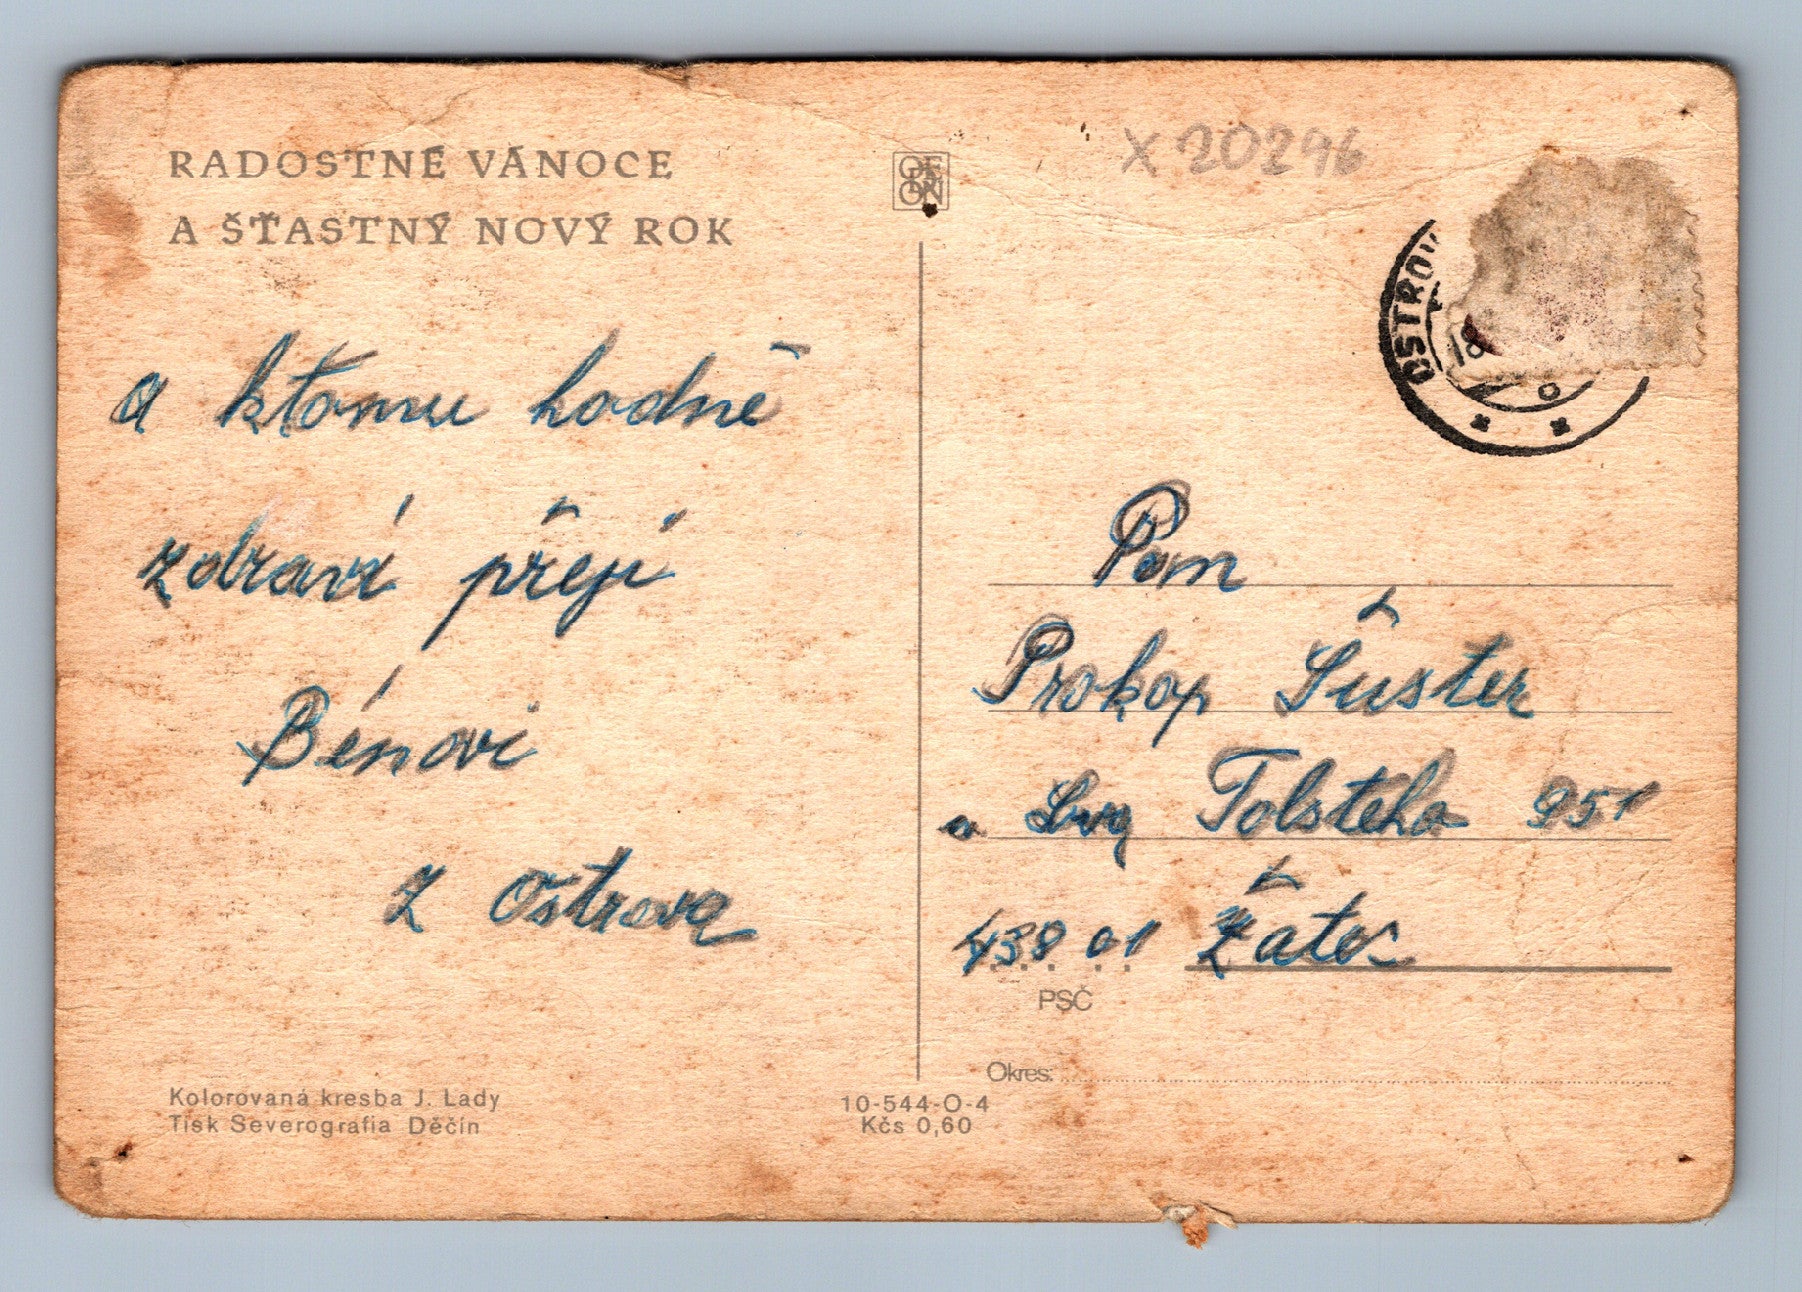 RADOSTNÉ VÁNOCE
A ŠŤASTNÝ NOVÝ ROK
a ktomu hodně
zdraví přejí
Bénovi
z Ostrova
Kolorovaná kresba J. Lady
Tisk Severografia Děčín
10-544-O-4
Kčs 0,60
ODEON
X 20296
OSTROV
18
Pan
Prokop Šuster
Lva Tolsteho 951
438 01 Žatec
PSČ
Okres: